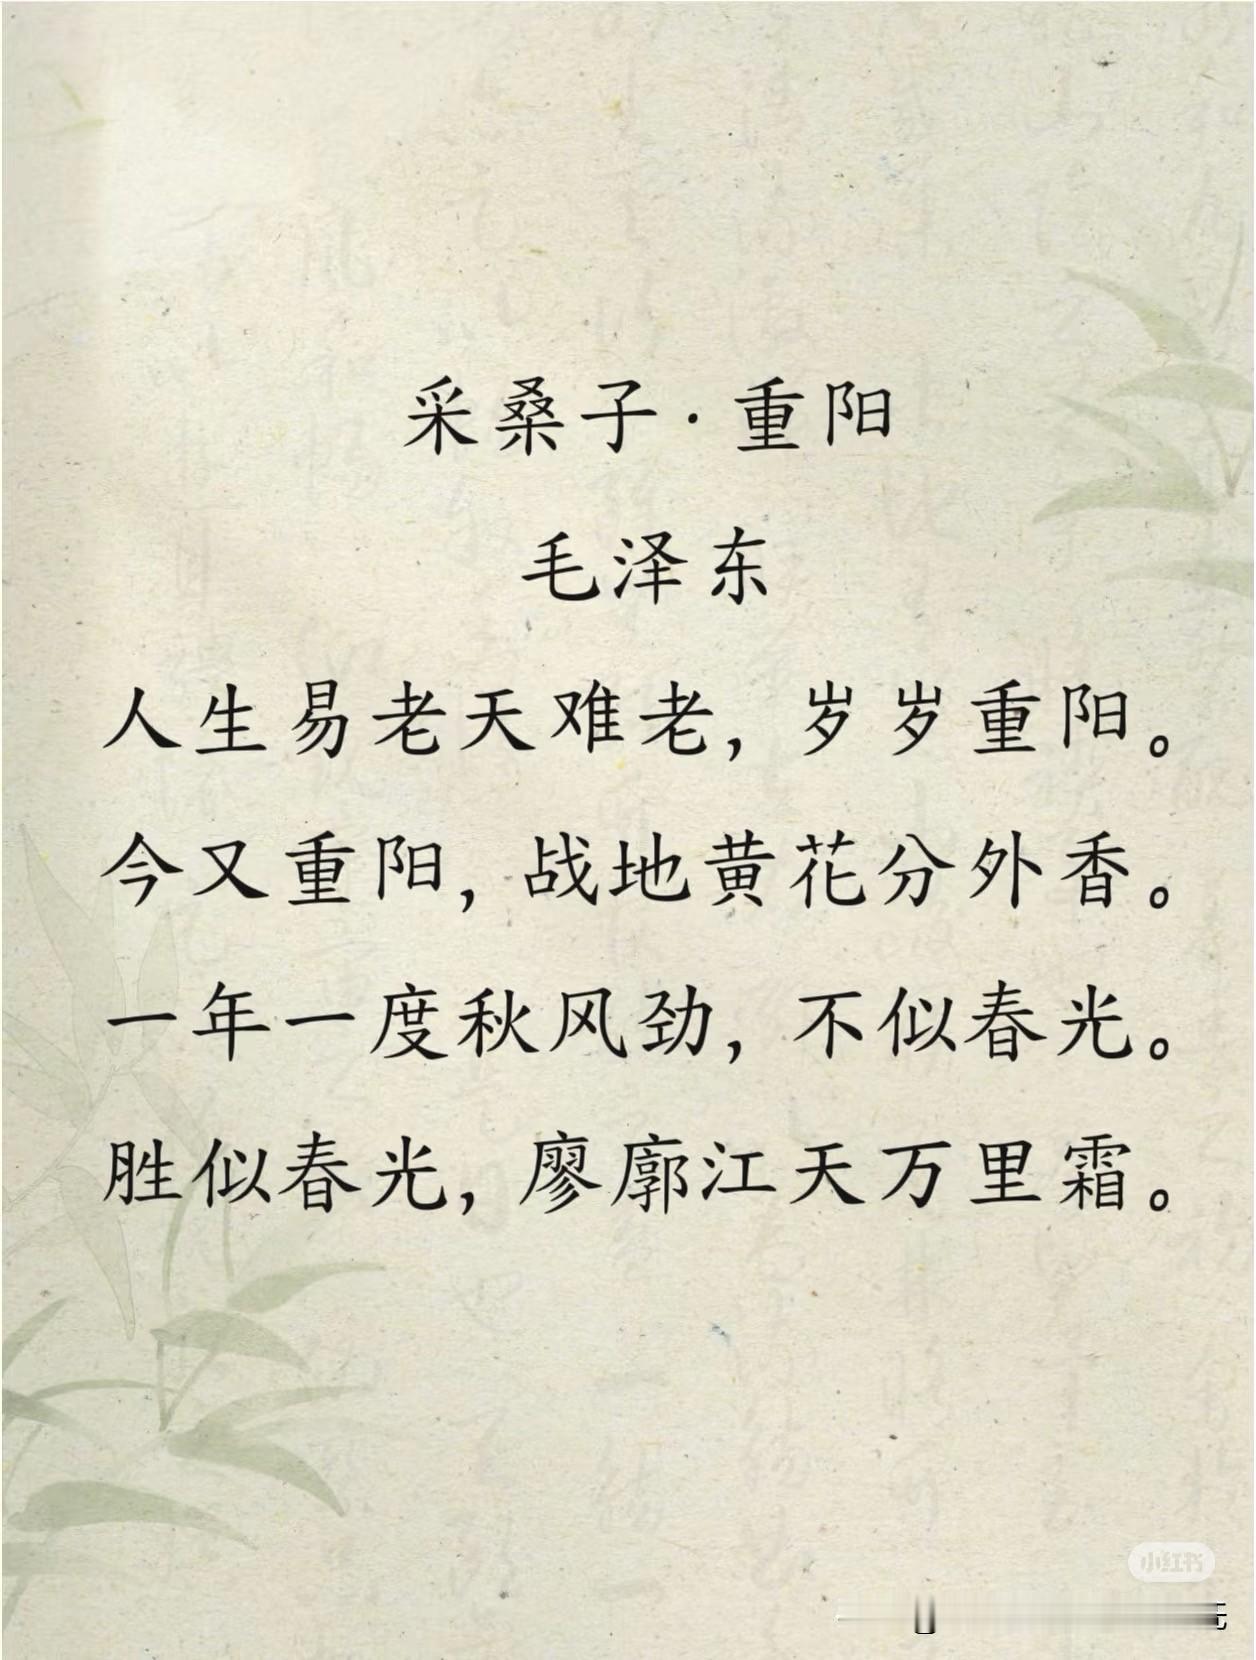 采桑子·重阳
毛泽东
人生易老天难老，岁岁重阳。
今又重阳，战地黄花分外香。
一年一度秋风劲，不似春光。
胜似春光，廖廓江天万里霜。
小红书